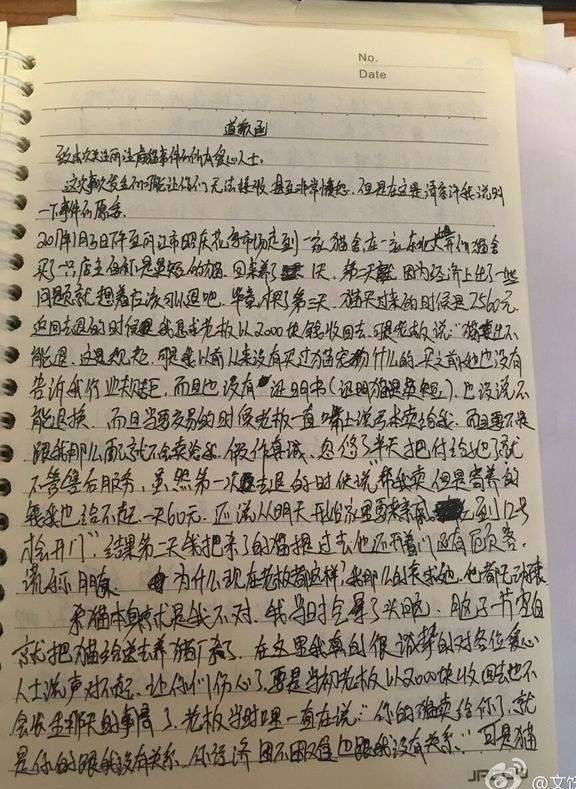 No.
Date
道歉函
致本次关注丽江虐猫事件的所有爱心人士:
这次事情发生的可能让你们无法接受甚至非常愤怒,但是在这里请容许我说明
一下事件的原委
2017年1月3日下午至丽江市昭庆花鸟市场走到一家猫舍,在一家东北大哥开的猫舍
买了一只店主自称是英短的猫,回来养了1天,第二天,因为经济上出了一些
问题就想着应该可以退吧,毕竟才第二天,猫买过来的时候是2560元
返回去退的时候我恳求老板以2000块钱收回去,可是老板说:"猫卖出不
能退,这是规矩,可是我以前从来没有买过猫宠物什么的,买之前他也没有
告诉我行业规矩,而且也没有证明书(证明猫是英短),也没说不
能退换,而且当要交易的时候老板一直嘴上说要卖给我,而且要不是
跟我那么面就不会卖给我,假作真诚,忽悠了半天把付给他了就
不管售后服务,虽然第一次去退的时候说"帮我卖,但是寄养的
钱我也给不起,一天60元,还说从明天开始家里要来客到12号
才会开门",结果第二天我把买了的猫提过去他还开着门还有顾客.
谎称 为什么现在老板都这样?我那么的哀求她,他都无动于衷
杀猫本身就是我不对,我当时气晕了头脑,脑子一片空白
就把猫给杀了,在这里我真的很诚挚的对各位爱心
人士说声对不起,让你们伤心了,要是当初老板以2000块收回去也不
会发生那天的事情了,老板当时一直在说:"你的猫卖给你了,就
是你的跟我没有关系,你经济困不困难也跟我没有关系."可是猫